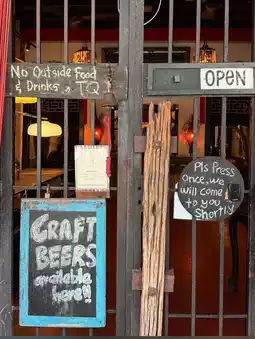 No Outside Food
& Drinks ~ TQ
OPEN
Pls Press
once, we
will come
to you
Shortly
CRAFT
BEERS
available
here!!